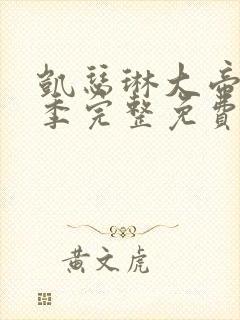 凱瑟琳大帝
季完整免費
黃文虎